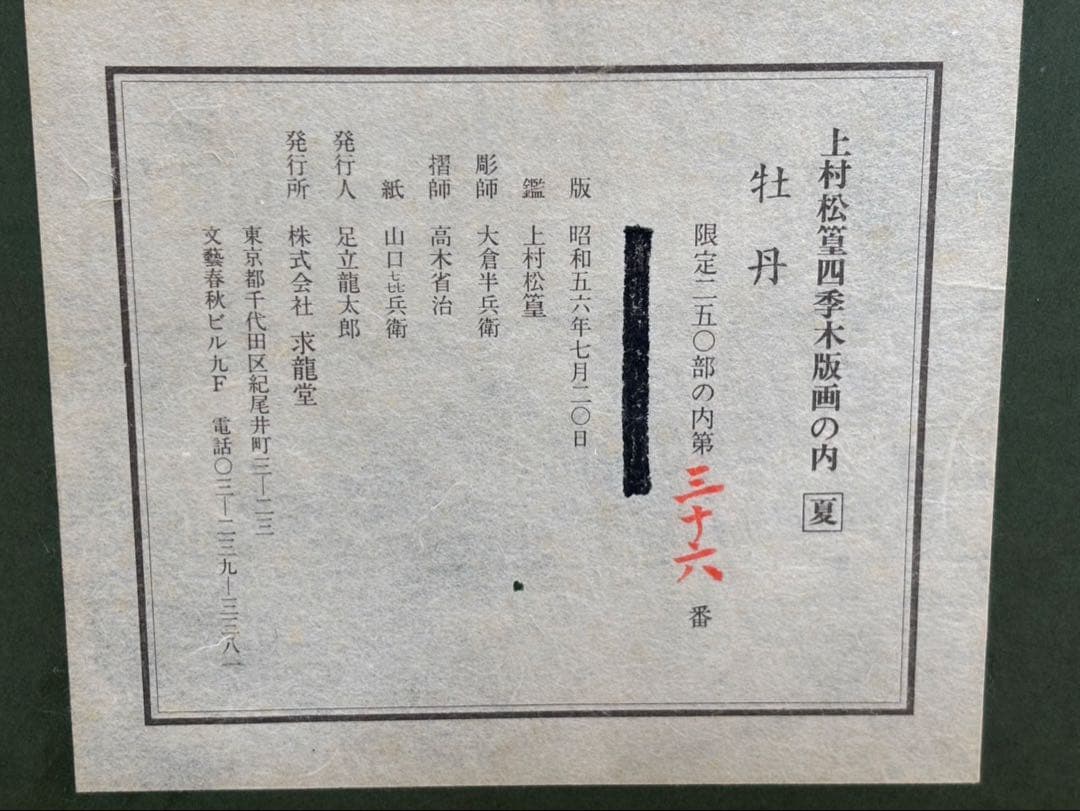 上村松篁四季木版画の内 夏
牡丹
限定二五〇部の内第三十六番
版 昭和五六年七月二〇日
鑑 上村松篁
彫師 大倉半兵衛
摺師 高木省治
紙 山口兵衛
発行人 足立龍太郎
発行所 株式会社 求龍堂
東京都千代田区紀尾井町三―二三
文藝春秋ビル九F 電話〇三―二三九―三三八一